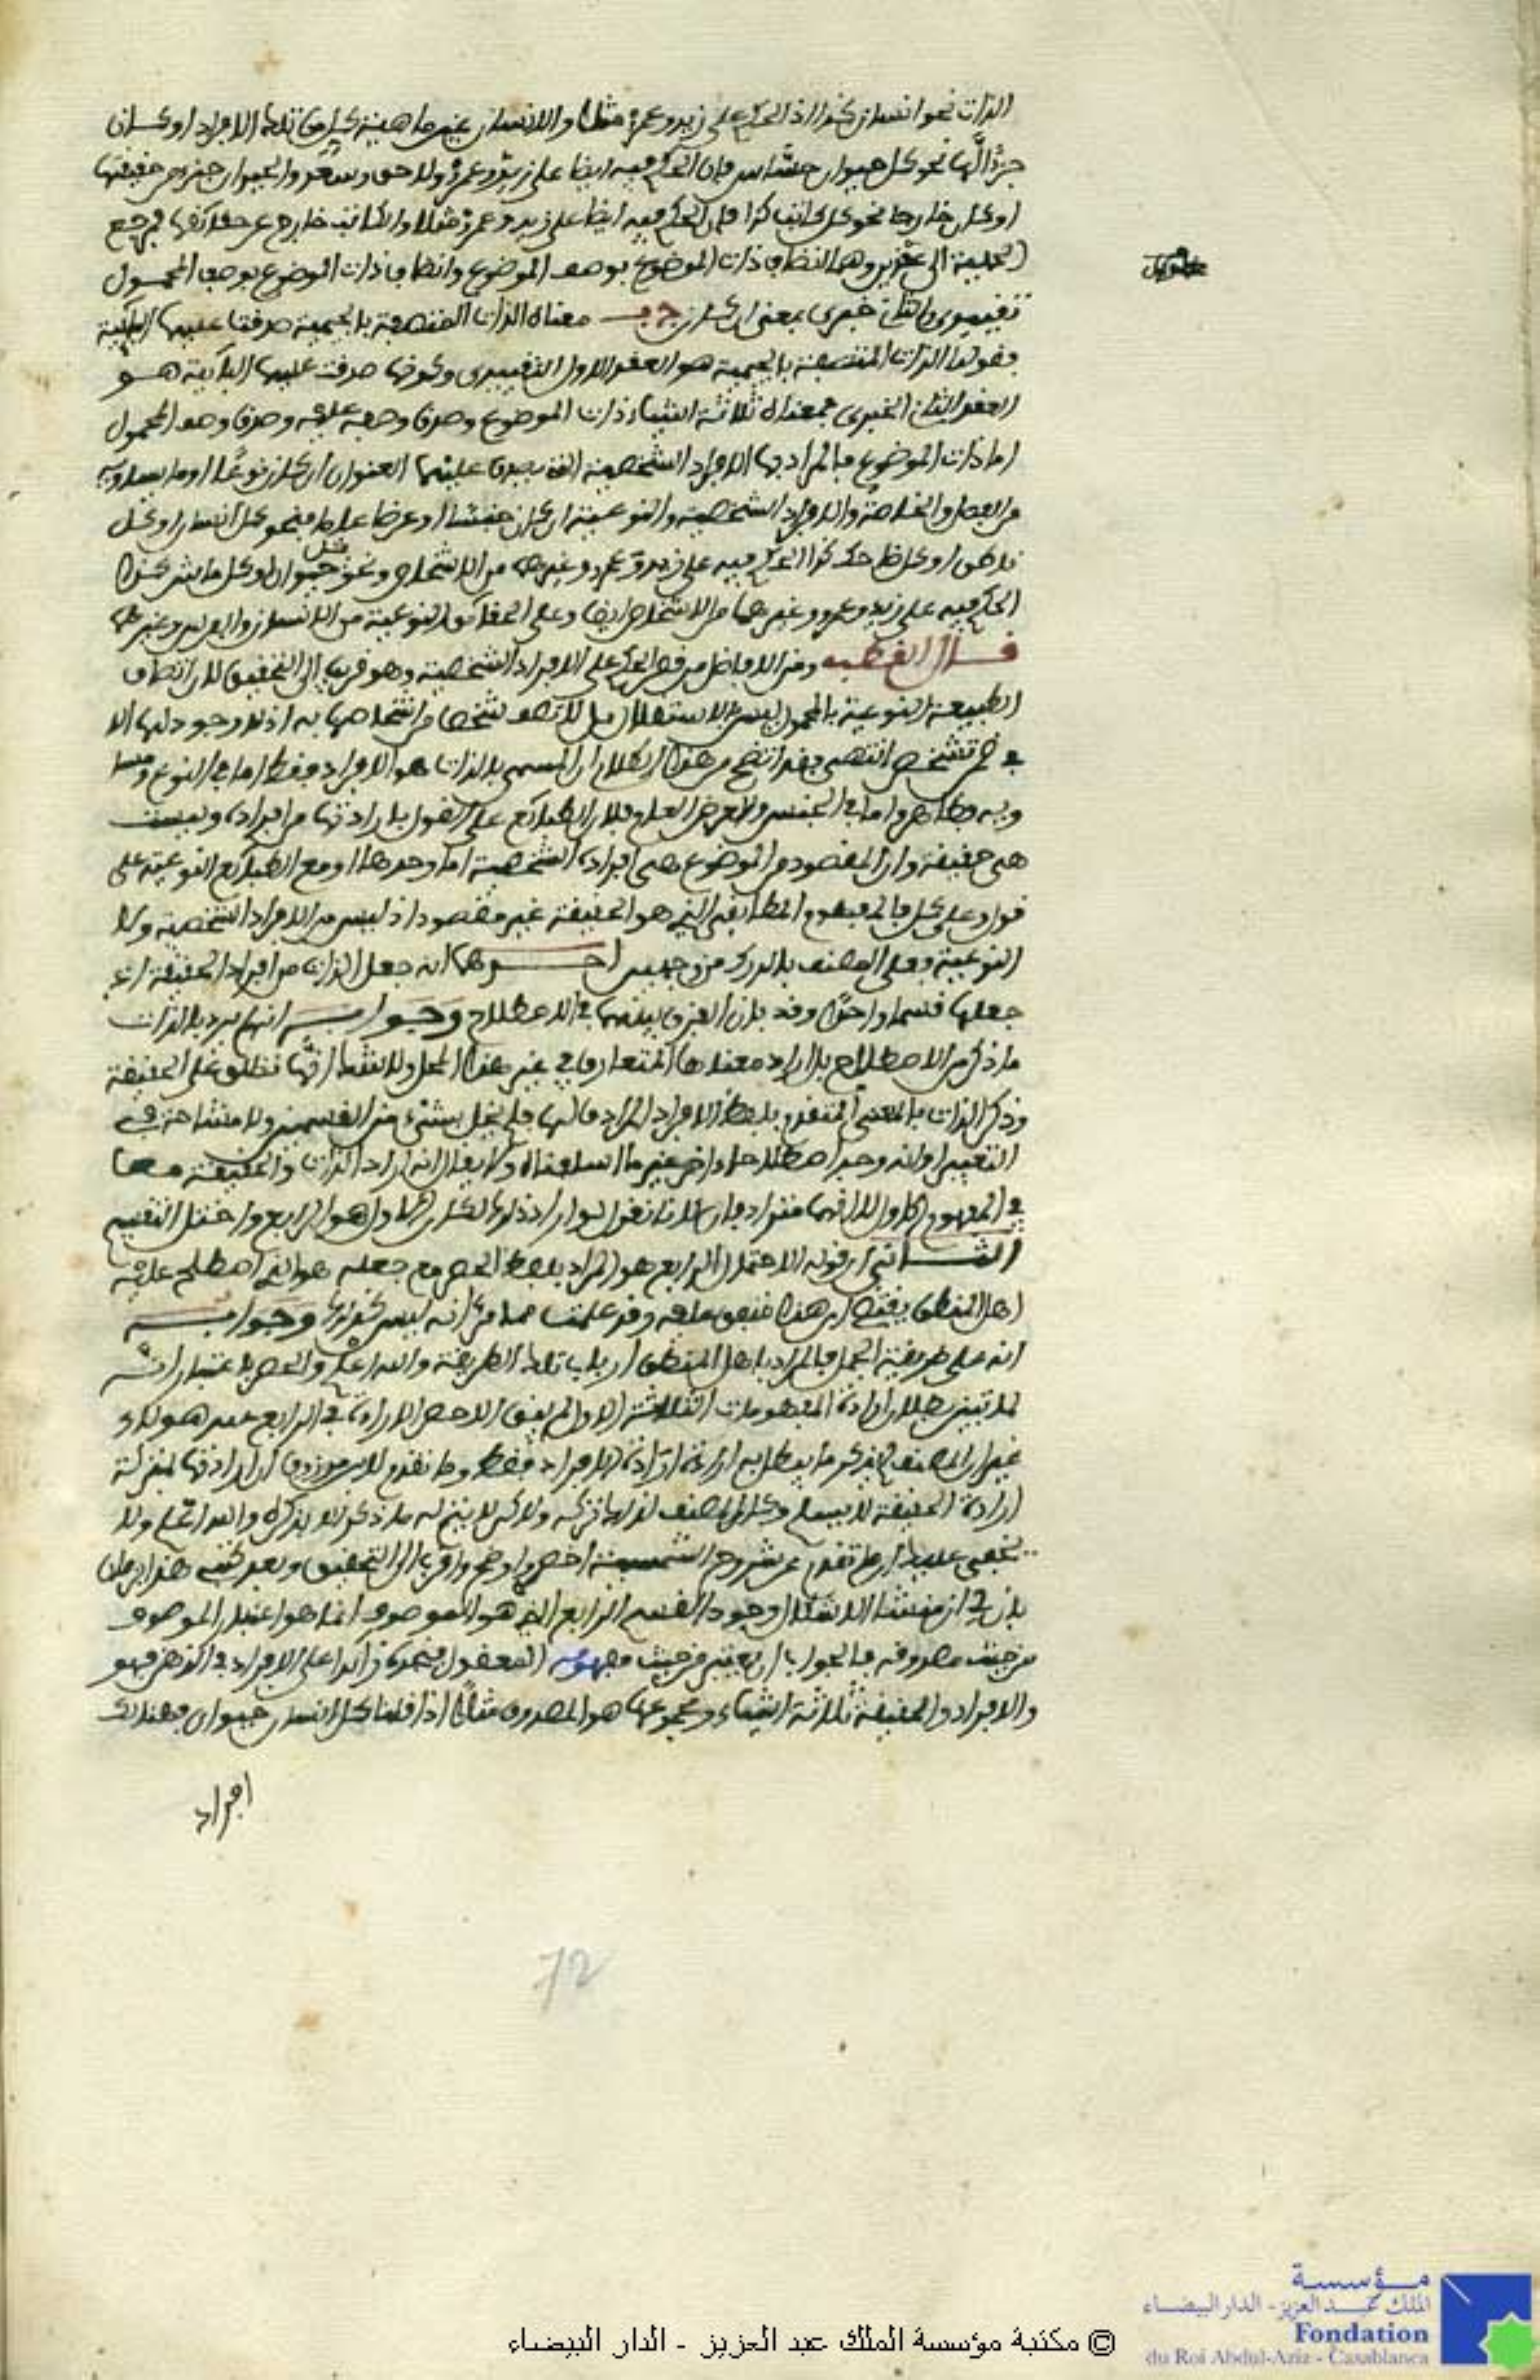 الذات نحو انسان كذا اذ الحكم على زيد وعمرو مثلا والانسان عين ماهية كل من تلك الافراد او كان
جزءا لها نحو كل حيوان حساس فان الحكم فيه ايضا على زيد وعمرو ولاحق والحيوان جزء من حقيقتها
او كان خارجا نحو كل كاتب كذا فان الحكم فيه ايضا على زيد وعمرو مثلا والكاتب خارج عن حقائقها فترجع
الحملية الى عقدين وهما اتصاف ذات الموضوع بوصف الموضوع واتصاف ذات الموضوع بوصف المحمول
تقييدي والثاني خبري بمعنى ان كل ج ب معناه الذات المتصفة بالجيمية صدقت عليها البائية
فقولنا الذات المتصفة بالجيمية هو العقد الاول التقييدي وكونها صدقت عليها البائية هو
العقد الثاني الخبري فمعناه ثلاثة اشياء ذات الموضوع وصدق وصفه عليه وصدق وصف المحمول
اما ذات الموضوع فالمراد بها الافراد الشخصية التي يصدق عليها العنوان ان كان نوعا او ما يساويه
من الفصل والخاصة والافراد الشخصية والنوعية ان كان جنسا او عرضا عاما فنحو كل انسان او كل
ناطق او كل ضاحك كذا الحكم فيه على زيد وعمرو وغيرهما من الاشخاص ونحو كل حيوان او كل ماش كذا
الحكم فيه على زيد وعمرو وغيرهما من الاشخاص ايضا وعلى الحقائق النوعية من الانسان والفرس وغيرهما
قال القطب ومن الافاضل من قصر الحكم على الافراد الشخصية وهو قريب الى التحقيق لان اتصاف
الطبيعة النوعية بالمحمول ليس بالاستقلال بل لاتصاف شخص من اشخاصها به اذ لا وجود لها الا
في ضمن تشخص انتهى فقد اتضح من هذا الكلام ان المسمى بالذات هو الافراد فقط اما في النوع و
وبه واما في الجنس والعرض العام فلان الطبائع على القول بارادتها من افراده وليست
هي حقيقة وان المقصود من الموضوع هي افراده الشخصية اما وحدها او مع الطبائع النوعية على
قول وعلى كل فالمفهوم المطابقي الذي هو الحقيقة غير مقصود اذ ليس من الافراد الشخصية ولا
النوعية وعلى المصنف بالدرك من وجهين احدهما انه جعل الذات من افراد الحقيقة اي
جعلها قسما واحدا وقد بان الفرق بينهما في الاصطلاح وجوابه انه لم يرد بالذات
ما ذكر من الاصطلاح بل اراد معناها المتعارف في غير هذا المحل ولا شك انها تطلق على الحقيقة
وذكر الذات بالمعنى المتقدم بلفظ الافراد المرادف لها فلم يخل بشيء من القسمين ولا مشاحة في
التعبير او انه وجد اصطلاحا اخر غير ما اسلفناه ولا يقال انه اراد الذات والحقيقة معا
في المفهوم الاول لانهما مترادفان لانا نقول لو اراد ذلك لكان الاول هو الرابع واختل التقسيم
الثاني ان قوله الاحتمال الرابع هو المراد بلفظ الحصر مع جعله هو الذي اصطلح عليه
اهل المنطق يقتضي ان هذا متفق عليه وقد علمت مما مر انه ليس كذلك وجوابه
انه على طريقة الجمل فالمراد باهل المنطق ارباب تلك الطريقة والله اعلم والحصر باعتبار انه
لما تبين بطلان ارادة المفهومات الثلاثة الاول لم يبق الا حصر الارادة في الرابع
غير ان المصنف لم يذكر ما يبطل به ارادة الافراد فقط وما تقدم ان ارادتها لمنزلة
ارادة الحقيقة لا يسلم المصنف لذا تركه ولكن لا يتم له ما ذكر الا بذكره والله اعلم ولا
يخفى عليك ان ما تقدم عن شروح الشمسية اخصر واوضح واقرب الى التحقيق وبعد كتب هذا
بان لي ان منشا الاشكال وجود القسم الرابع الذي هو الموصوف انما هو اعتبار الموصوف
من حيث مصدوقه فالجواب ان يعتبر من حيث مفهومه المعقول فنجده زائدا على الافراد في الذهن فهو
والافراد والحقيقة ثلاثة اشياء ومجموعها هو المصدوق مثلا اذا قلنا كل انسان حيوان فهناك
افراد
72
© مكتبة مؤسسة الملك عبد العزيز - الدار البيضاء
مؤسسة
الملك عبد العزيز - الدار البيضاء
Fondation
du Roi Abdul-Aziz - Casablanca